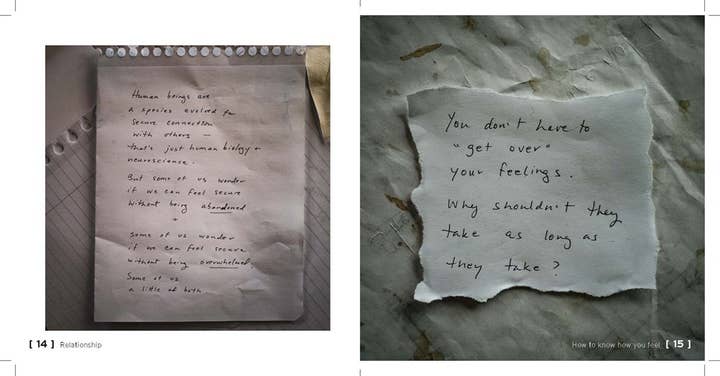 Human beings are
a species evolved for
secure connection
with others —
that's just human biology +
neuroscience.
But some of us wonder
if we can feel secure
without being abandoned
+
some of us wonder
if we can feel secure
without being overwhelmed.
Some of us
a little of both.
[ 14 ] Relationship
You don't have to
"get over"
your feelings.
Why shouldn't they
take as long as
they take?
How to know how you feel [ 15 ]